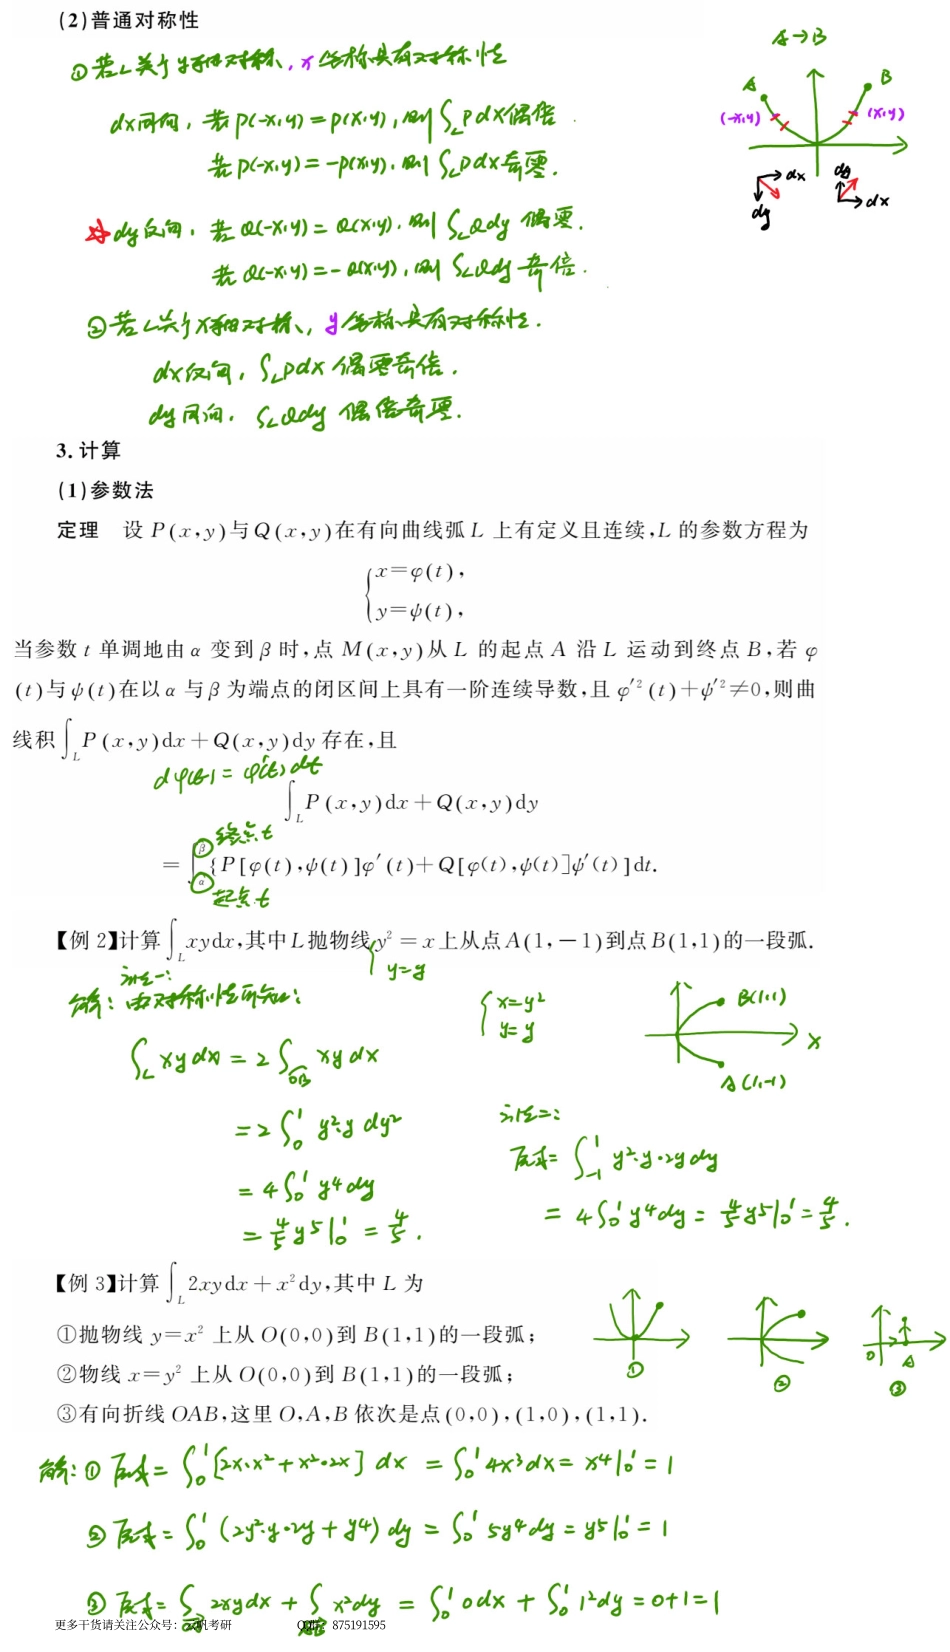 (2)普通对称性
①若L关于y轴对称,x坐标具有对称性
dx同向,若P(-x,y)=P(x,y),则∫_L Pdx偶倍.
若P(-x,y)=-P(x,y),则∫_L Pdx奇零.
dy反向,若Q(-x,y)=Q(x,y),则∫_L Qdy 偶零.
若Q(-x,y)=-Q(x,y),则∫_L Qdy奇倍.
②若L关于x轴对称,y坐标具有对称性.
dx反向,∫_L Pdx偶零奇倍.
dy同向,∫_L Qdy 偶倍奇零.
A→B
A
B
(-x,y)
(x,y)
dx
dy
dy
dx
3.计算
(1)参数法
定理 设P(x,y)与Q(x,y)在有向曲线弧L上有定义且连续,L的参数方程为
{x=φ(t),
y=ψ(t),
当参数t单调地由α变到β时,点M(x,y)从L的起点A沿L运动到终点B,若φ
(t)与ψ(t)在以α与β为端点的闭区间上具有一阶连续导数,且φ′²(t)+ψ′²≠0,则曲
线积∫_L P(x,y)dx+Q(x,y)dy存在,且
dφ(t)=φ′(t)dt
∫_L P(x,y)dx+Q(x,y)dy
终点t
=∫_α^β{P[φ(t),ψ(t)]φ′(t)+Q[φ(t),ψ(t)]ψ′(t)]dt.
起点t
【例2】计算∫_L xydx,其中L抛物线y²=x上从点A(1,-1)到点B(1,1)的一段弧.
{y=y
法一:
解:由对称性可知:
{x=y²
y=y
B(1,1)
x
A(1,-1)
∫_L xydx=2∫_OB xydx
=2∫_0^1 y²·y dy²
=4∫_0^1 y⁴dy
=4/5 y⁵|_0^1=4/5.
法二:
原式=∫_{-1}^1 y²·y·2ydy
=4∫_0^1 y⁴dy=4/5 y⁵|_0^1=4/5.
【例3】计算∫_L 2xydx+x²dy,其中L为
①抛物线y=x²上从O(0,0)到B(1,1)的一段弧;
②物线x=y²上从O(0,0)到B(1,1)的一段弧;
③有向折线OAB,这里O,A,B依次是点(0,0),(1,0),(1,1).
①
②
O
A
③
解:①原式=∫_0^1[2x·x²+x²·2x]dx=∫_0^1 4x³dx=x⁴|_0^1=1
②原式=∫_0^1(2y²·y·2y+y⁴)dy=∫_0^1 5y⁴dy=y⁵|_0^1=1
③原式=∫_OA 2xydx+∫_AB x²dy=∫_0^1 0dx+∫_0^1 1²dy=0+1=1
更多干货请关注公众号:
帆考研
875191595